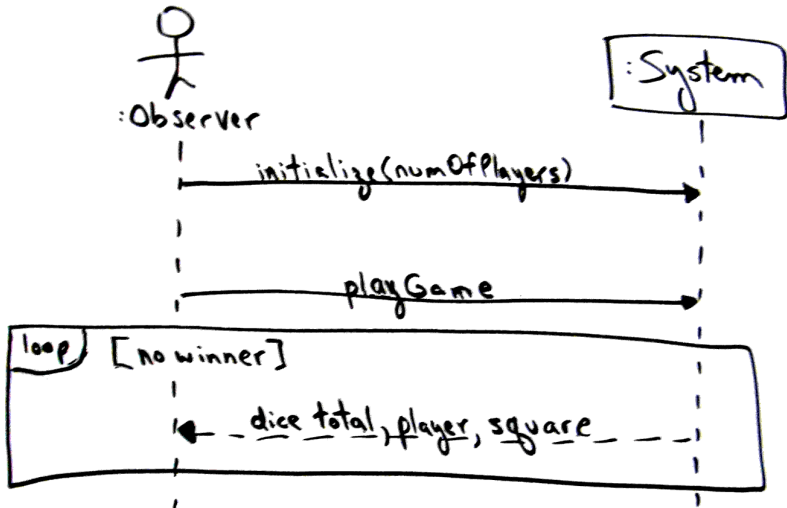 :Observer
:System
initialize(numOfPlayers)
playGame
loop
[no winner]
dice total, player, square